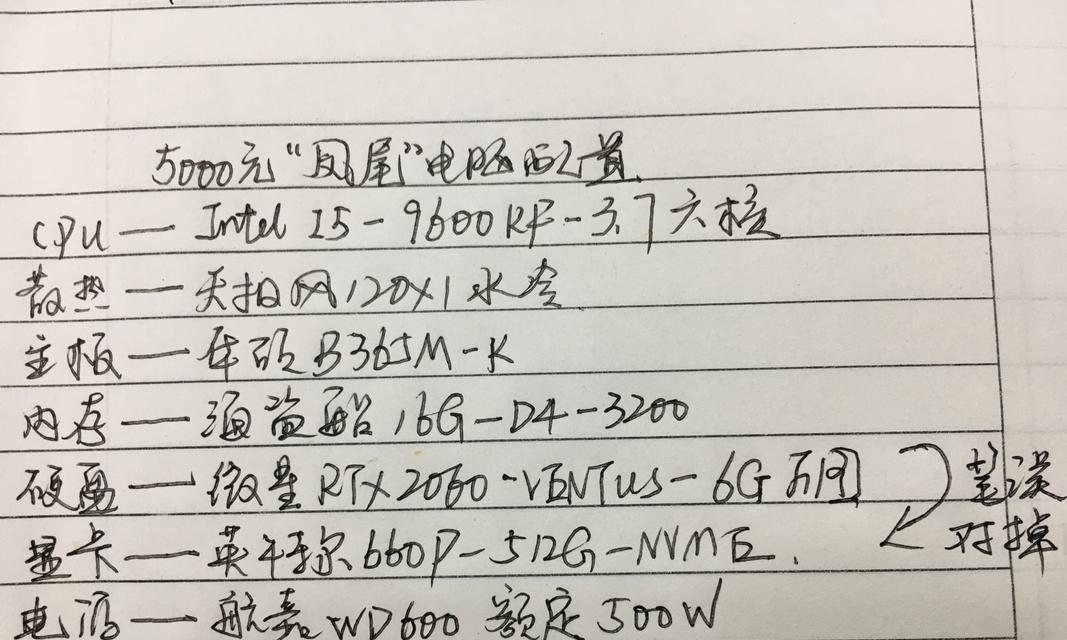 5000元“凤尾”电脑配置
CPU — Intel I5-9600KF-3.7六核
散热 — 天极风120X1水冷
主板 — 华硕B365M-K
内存 — 海盗船16G-D4-3200
硬盘 — 微星RTX2060-VENTUS-6G万图
显卡 — 英特尔660P-512G-NVME.
电源 — 航嘉WD600 额定500W
笔误
对掉